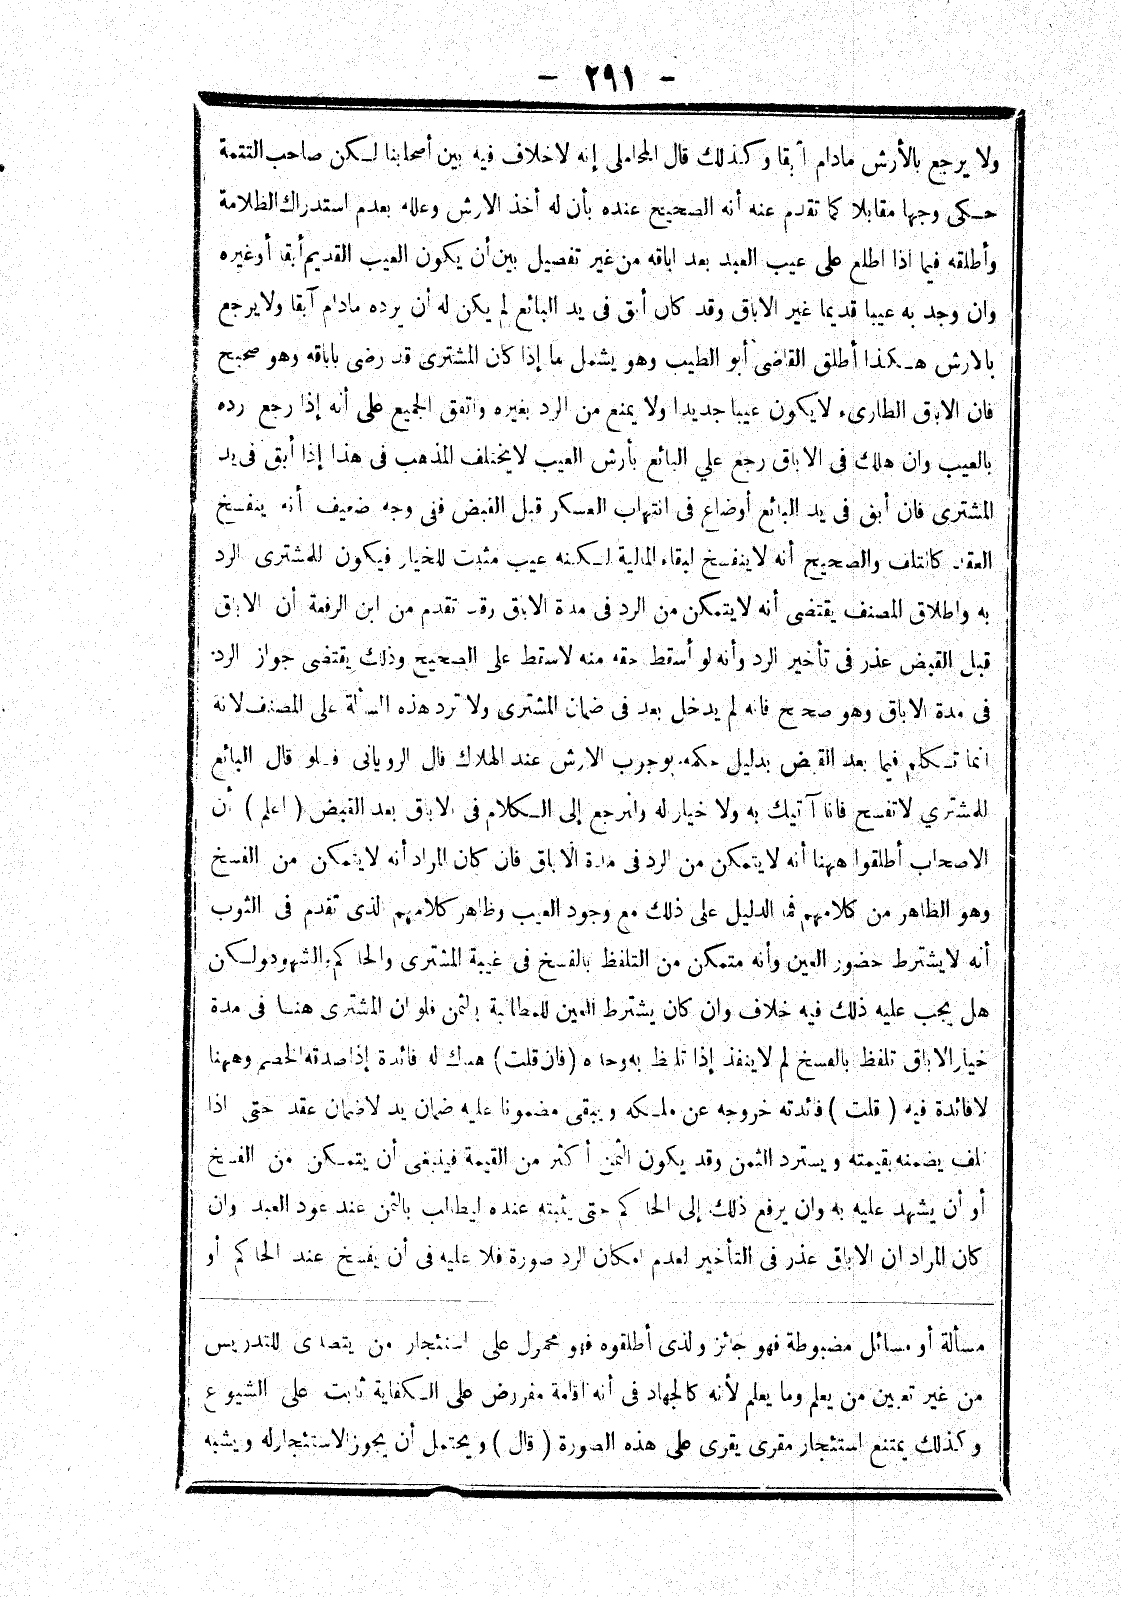 - ٢٩١ -
ولا يرجع بالأرش مادام آبقا وكذلك قال المحاملى إنه لاخلاف فيه بين أصحابنا لكن صاحب التتمة
حكى وجها مقابلا كما تقدم عنه أنه الصحيح عنده بأن له أخذ الارش وعلله بعدم استدراك الظلامة
وأطلقه فيما اذا اطلع على عيب العبد بعد اباقه من غير تفصيل بين أن يكون العيب القديم أبقا أوغيره
وان وجد به عيبا قديما غير الاباق وقد كان أبق فى يد البائع لم يكن له أن يرده مادام آبقا ولايرجع
بالارش هكذا أطلق القاضى أبو الطيب وهو يشمل ما إذا كان المشترى قد رضى باباقه وهو صحيح
فان الاباق الطارىء لايكون عيبا جديدا ولا يمنع من الرد بغيره واتفق الجميع على أنه إذا رجع رده
بالعيب وان هلك فى الاباق رجع علي البائع بأرش العيب لايختلف المذهب فى هذا إذا أبق فى يد
المشترى فان أبق فى يد البائع أوضاع فى انتهاب العسكر قبل القبض ففى وجه ضعيف أنه ينفسخ
العقد كالتلف والصحيح أنه لاينفسخ لبقاء المالية لكنه عيب مثبت للخيار فيكون للمشترى الرد
به واطلاق المصنف يقتضى أنه لايتمكن من الرد فى مدة الاباق وقد تقدم من ابن الرفعة أن الاباق
قبل القبض عذر فى تأخير الرد وأنه لو أسقط حقه منه لاسقط على الصحيح وذلك يقتضى جواز الرد
فى مدة الاباق وهو صحيح فانه لم يدخل بعد فى ضمان المشترى ولا ترد هذه المسألة على المصنف لانه
انما تكلم فيما بعد القبض بدليل حكمه بوجوب الارش عند الهلاك قال الرويانى فلو قال البائع
للمشتري لاتفسخ فانا آتيك به ولا خيار له ولنرجع إلى الكلام فى الاباق بعد القبض ( اعلم ) أن
الاصحاب أطلقوا ههنا أنه لايتمكن من الرد فى مدة الاباق فان كان المراد أنه لايتمكن من الفسخ
وهو الظاهر من كلامهم فما الدليل على ذلك مع وجود العيب وظاهر كلامهم الذى تقدم فى الثوب
أنه لايشترط حضور العين وأنه متمكن من التلفظ بالفسخ فى غيبة المشترى والحاكم والشهود ولكن
هل يجب عليه ذلك فيه خلاف وان كان يشترط العين للمطالبة بالثمن فلو ان المشترى هنا فى مدة
خيار الاباق تلفظ بالفسخ لم لاينفذ إذا تلفظ به وحده (فان قلت) هناك له فائدة إذا صدقه الخصم وههنا
لافائدة فيه ( قلت ) فائدته خروجه عن ملكه ويبقى مضمونا عليه ضمان يد لاضمان عقد حتى اذا
تلف يضمنه بقيمته ويسترد الثمن وقد يكون الثمن أكثر من القيمة فينبغى أن يتمكن من الفسخ
أو أن يشهد عليه به وان يرفع ذلك إلى الحاكم حتى يثبته عنده ليطالب بالثمن عند عود العبد وان
كان المراد ان الاباق عذر فى التأخير لعدم امكان الرد صورة فلا عليه فى أن يفسخ عند الحاكم أو
مسألة أو مسائل مضبوطة فهو جائز والذى أطلقوه فهو محمول على استئجار من يتصدى للتدريس
من غير تعيين من يعلم وما يعلم لأنه كالجهاد فى أنه اقامة مفروض على الكفاية ثابت على الشيوع
وكذلك يمتنع استئجار مقرى يقرى على هذه الصورة ( قال ) ويحتمل أن يجوز الاستئجار له ويشبه